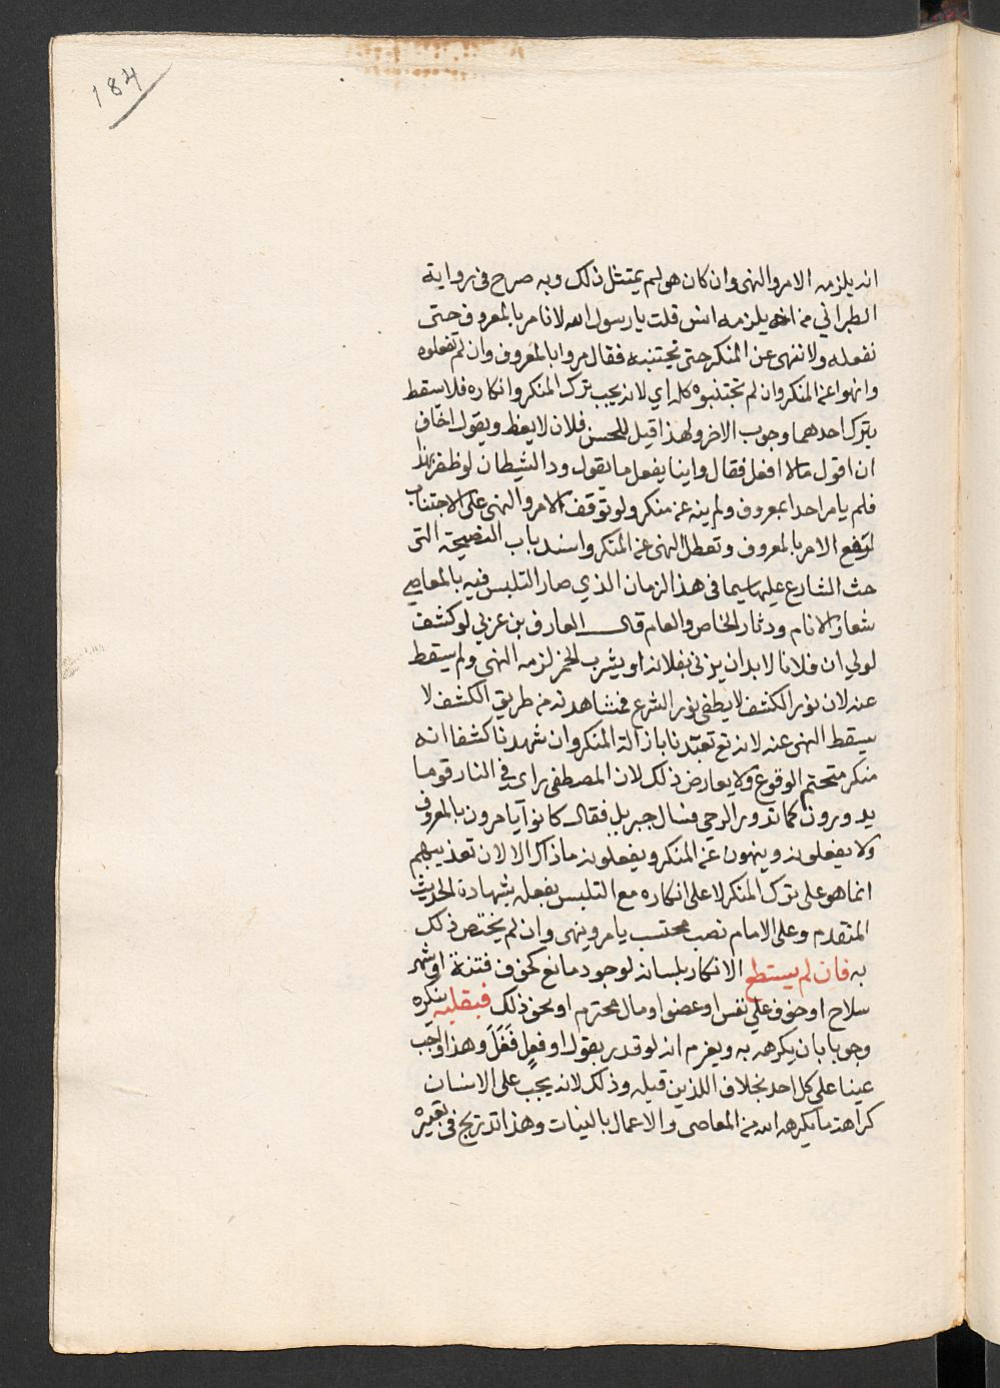 184
انه يلزمه الامر والنهى وان كان هو لم يمتثل ذلك وبه صرح فى رواية
الطبراني من يلزمه انس قلت يا رسول الله لا نامر بالمعروف حتى
نفعله ولا ننهى عن المنكر حتى نجتنبه فقال مروا بالمعروف وان لم تفعلوه
وانهوا عن المنكر وان لم تجتنبوه كله اي لانه يجب ترك المنكر وانكاره فلا يسقط
بترك احدهما وجوب الاخر ولهذا قيل للحسن فلان لا يعظ ويقول اخاف
ان اقول مالا افعل فقال واينا يفعل ما يقول ود الشيطان لو ظفر بهذا
فلم يامر احد بمعروف ولم ينه عن منكر ولو توقف الامر والنهى على الاجتناب
لرفع الامر بالمعروف وتعطل النهى عن المنكر وانسد باب النصيحة التى
حث الشارع عليها سيما فى هذا الزمان الذي صار التلبس فيه بالمعاصي
شعار الانام ودثار الخاص والعام قال العارف بن عربي لو كشف
لولي ان فلانا لا بد ان يزنى بفلانه او يشرب الخمر لزمه النهى ولم يسقط
عنه لان نور الكشف لا يطفى نور الشرع فمشاهدته من طريق الكشف لا
يسقط النهى عنه لانه تع تعبدنا بازالة المنكر وان شهدنا كشفا انه
منكر متحتم الوقوع ولا يعارض ذلك لان المصطفى راى فى النار قوما
يدورون كما تدور الرحى فسال جبريل فقال كانوا يامرون بالمعروف
ولا يفعلونه وينهون عن المنكر ويفعلونه ماذاك الا لان تعذيبهم
انما هو على ترك المنكر لا على انكاره مع التلبس بفعله بشهادة الحديث
المتقدم وعلى الامام نصب محتسب يامر وينهى وان لم يختص ذلك
به فان لم يستطع الانكار بلسانه لوجود مانع كخوف فتنة او شهر
سلاح او خوف على نفس او عضو او مال محترم او نحو ذلك فبقلبه ينكره
وجوبا بان يكرهه به ويعزم انه لو قدر بقول او فعل فَعَلَ وهذا واجب
عينا على كل احد بخلاف اللذين قبله وذلك لانه يجب على الانسان
كراهة ما يكرهه الله من المعاصى والاعمال بالنيات وهذا تدريج فى تغييره